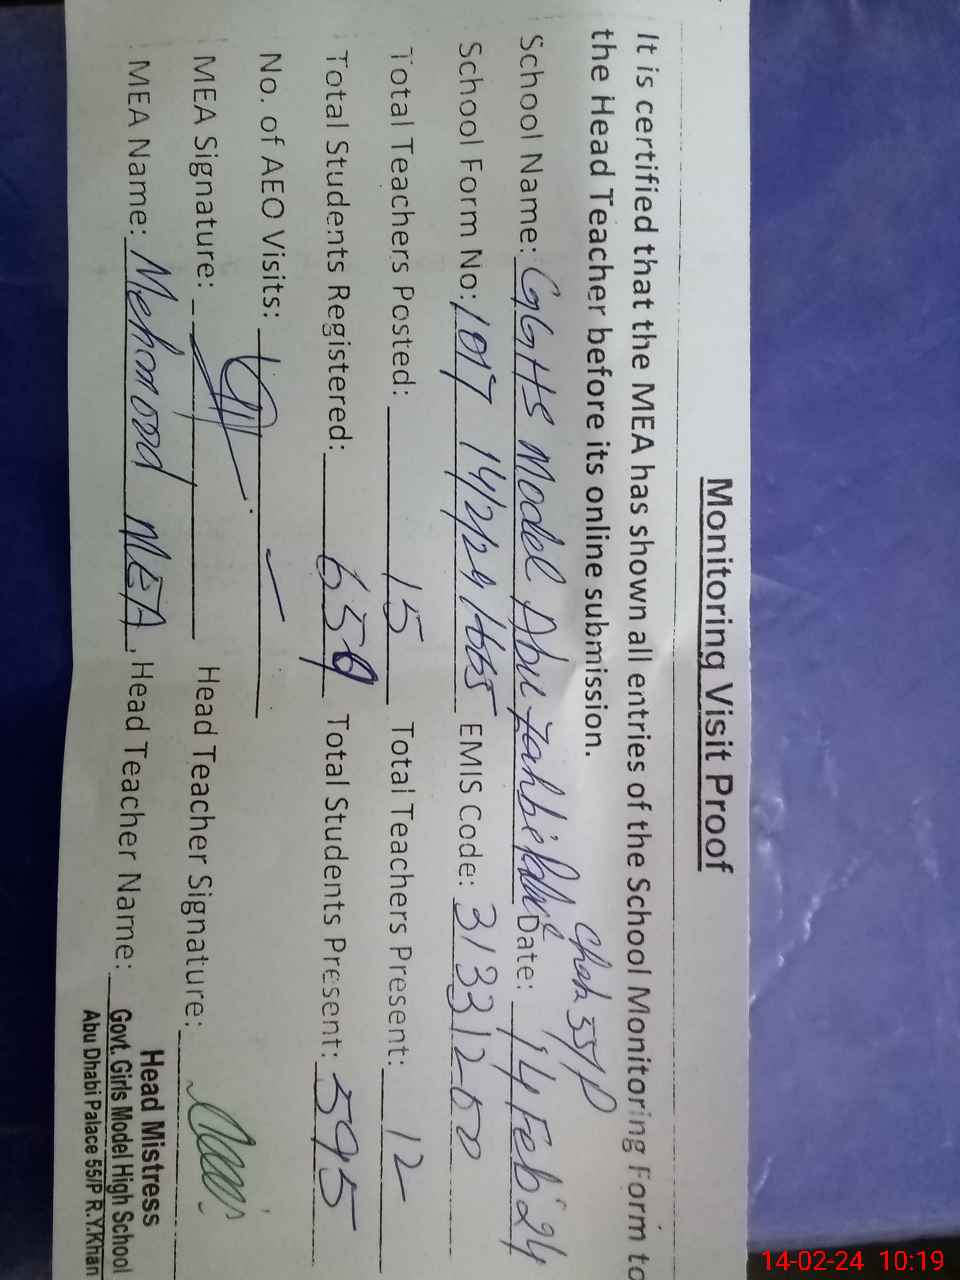 Monitoring Visit Proof
It is certified that the MEA has shown all entries of the School Monitoring Form to
the Head Teacher before its online submission.
Chak 55/P
School Name: GGHS Model Abu Date: 14 Feb 24
School Form No: EMIS Code: 31331260
Total Teachers Posted: 15 Total Teachers Present: 12
Total Students Registered: 659 Total Students Present: 595
No. of AEO Visits: —
MEA Signature: Head Teacher Signature:
MEA Name: Mehmood MEA. Head Teacher Name:
Head Mistress
Govt. Girls Model High School
Abu Dhabi Palace 55/P R.Y.Khan
14-02-24 10:19